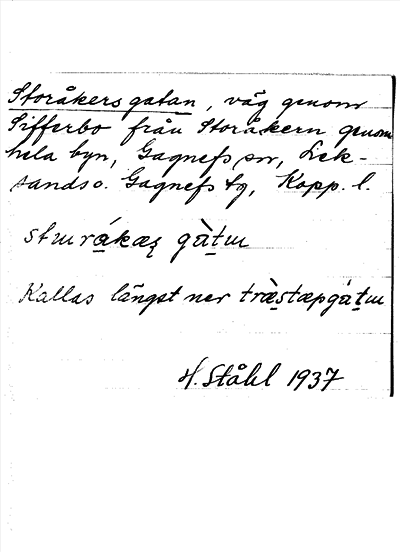 Storåkersgatan, väg genom
Sifferbo från Storåkern genom
hela byn, Gagnefs sn, Lek-
sands o. Gagnefs tg, Kopp. l.
stɯrákæʐ gàtɯ
Kallas längst ner træ̀stæpgátɯ
H. Ståhl 1937